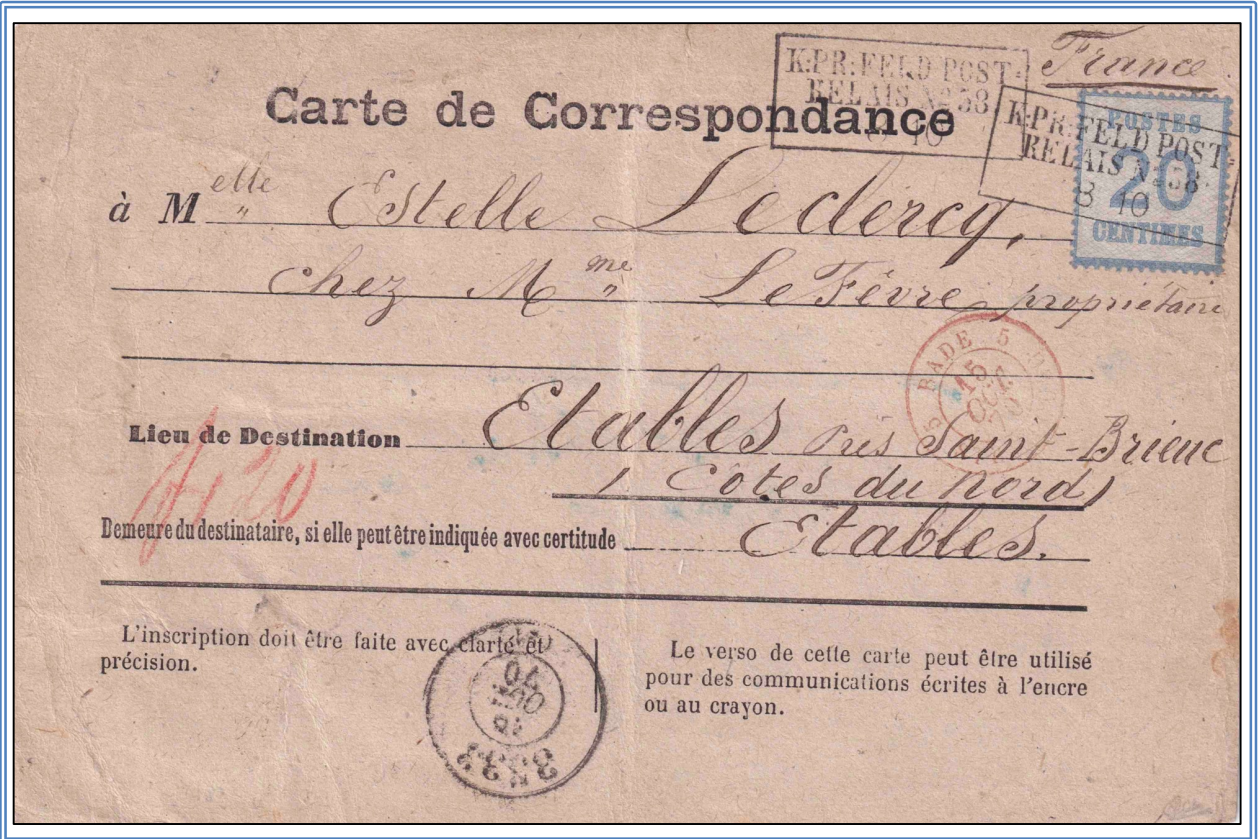 France
K:PR:FELD POST-
RELAIS No 58
10
K:PR:FELD POST-
RELAIS No 58
8 10
POSTES
20
CENTIMES
Carte de Correspondance
à M elle Estelle Leclercq,
chez M me Le Fèvre propriétaire
BADE 5
15
OCT.
70
Lieu de Destination Etables près Saint-Brieuc
(Côtes du Nord)
f 20
Demeure du destinataire, si elle peut être indiquée avec certitude Etables.
L'inscription doit être faite avec clarté et
précision.
Le verso de cette carte peut être utilisé
pour des communications écrites à l'encre
ou au crayon.
16
OCT.
70